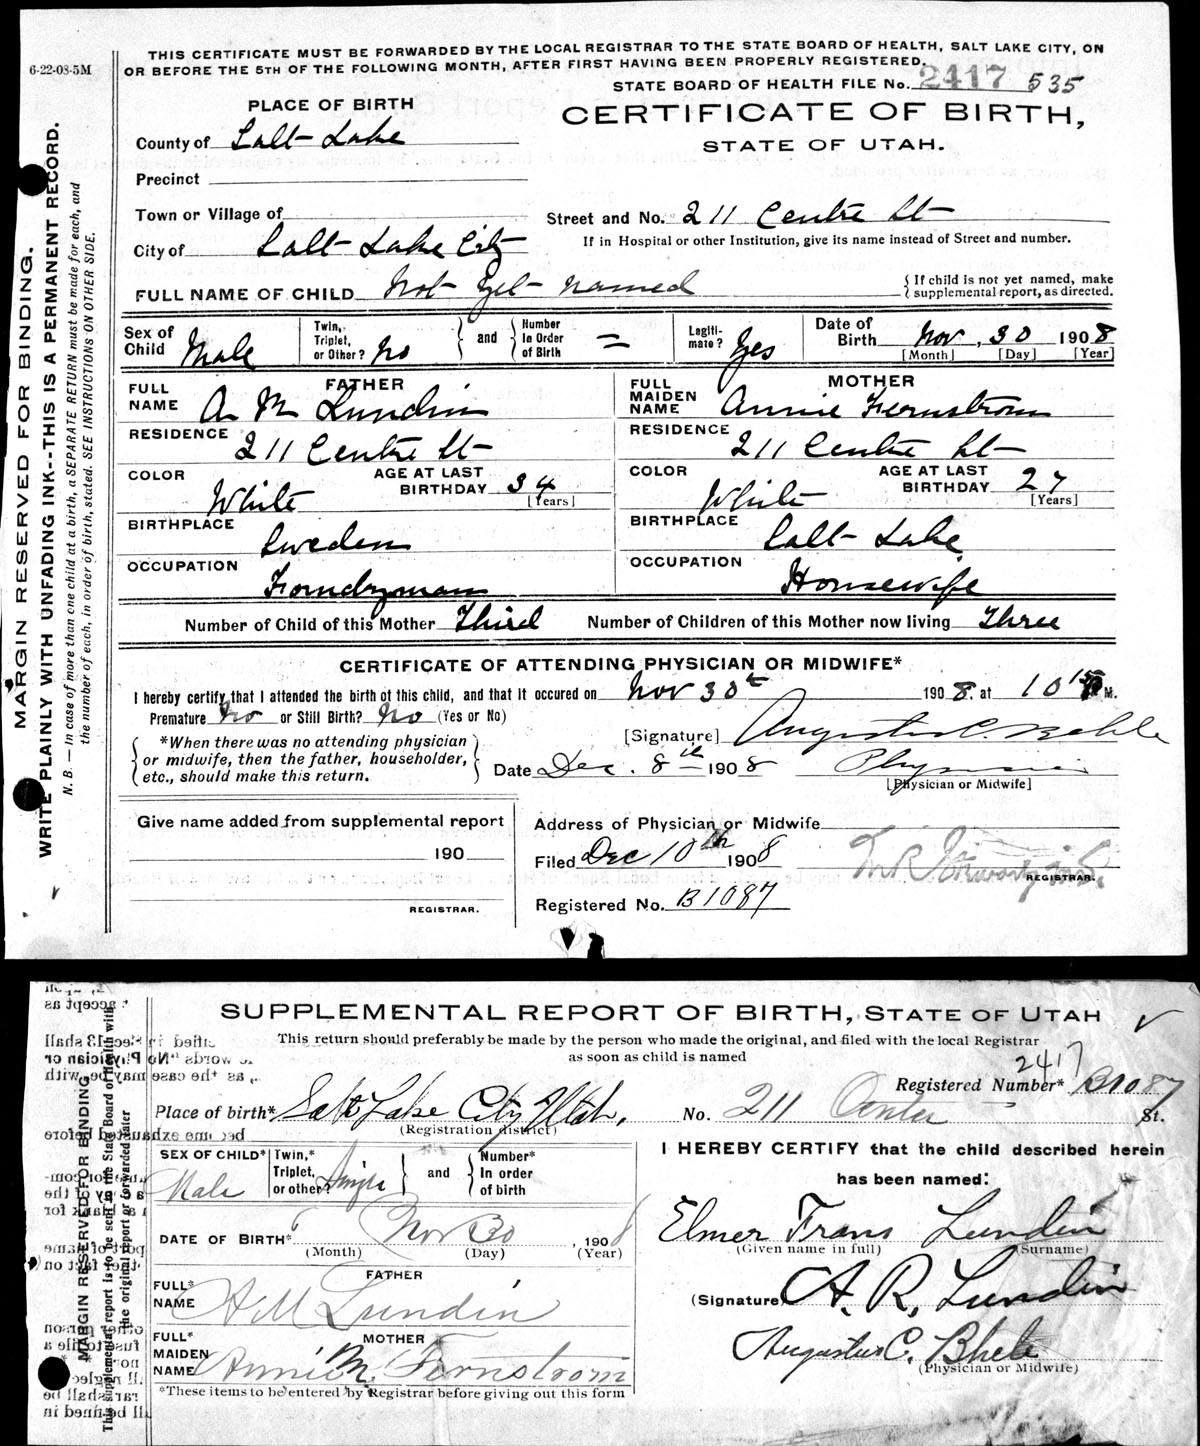 6-22-08-5M
THIS CERTIFICATE MUST BE FORWARDED BY THE LOCAL REGISTRAR TO THE STATE BOARD OF HEALTH, SALT LAKE CITY, ON
OR BEFORE THE 5TH OF THE FOLLOWING MONTH, AFTER FIRST HAVING BEEN PROPERLY REGISTERED.
STATE BOARD OF HEALTH FILE No. 2417 535
PLACE OF BIRTH
CERTIFICATE OF BIRTH,
STATE OF UTAH.
County of Salt Lake
Precinct
Town or Village of
Street and No. 211 Centre St
City of Salt Lake City
If in Hospital or other Institution, give its name instead of Street and number.
FULL NAME OF CHILD Not Yet named
If child is not yet named, make
supplemental report, as directed.
Sex of Child Male
Twin, Triplet, or Other? No
and
Number In Order of Birth =
Legitimate? Yes
Date of Birth Nov, 30 1908
[Month] [Day] [Year]
FATHER
FULL NAME A M Lundin
MOTHER
FULL MAIDEN NAME Annie Fernstrom
RESIDENCE 211 Centre St
RESIDENCE 211 Centre St
COLOR White
AGE AT LAST BIRTHDAY 34 [Years]
COLOR White
AGE AT LAST BIRTHDAY 27 [Years]
BIRTHPLACE Sweden
BIRTHPLACE Salt Lake
OCCUPATION Foundryman
OCCUPATION Housewife
Number of Child of this Mother Third
Number of Children of this Mother now living Three
CERTIFICATE OF ATTENDING PHYSICIAN OR MIDWIFE*
I hereby certify that I attended the birth of this child, and that it occured on Nov 30th 1908. at 10 15 M.
Premature No or Still Birth? No (Yes or No)
*When there was no attending physician
or midwife, then the father, householder,
etc., should make this return.
[Signature] Augustus C. Behle
Date Dec. 8th 1908
Physician
[Physician or Midwife]
Give name added from supplemental report
190
REGISTRAR.
Address of Physician or Midwife
Filed Dec 10th 1908
REGISTRAR.
Registered No. B1087
MARGIN RESERVED FOR BINDING.
WRITE PLAINLY WITH UNFADING INK--THIS IS A PERMANENT RECORD.
N. B.—In case of more than one child at a birth, a SEPARATE RETURN must be made for each, and
the number of each, in order of birth, stated. SEE INSTRUCTIONS ON OTHER SIDE.
SUPPLEMENTAL REPORT OF BIRTH, STATE OF UTAH
This return should preferably be made by the person who made the original, and filed with the local Registrar
as soon as child is named
2417
Registered Number* B1087
Place of birth* Salt Lake City Utah, No. 211 Center St.
(Registration district)
SEX OF CHILD* Male
Twin,* Triplet, or other? Single
and
Number* In order of birth
I HEREBY CERTIFY that the child described herein
has been named:
Elmer Frans Lundin
(Given name in full) (Surname)
DATE OF BIRTH* Nov 30, 1908
(Month) (Day) (Year)
FATHER
FULL* NAME A M Lundin
(Signature) A. R. Lundin
MOTHER
FULL* MAIDEN NAME Annie M. Fernstrom
Augustus C. Bhele
(Physician or Midwife)
*These items to be entered by Registrar before giving out this form
MARGIN RESERVED FOR BINDING
This supplemental report is to be sent to the State Board of Health with
the original report or forwarded later